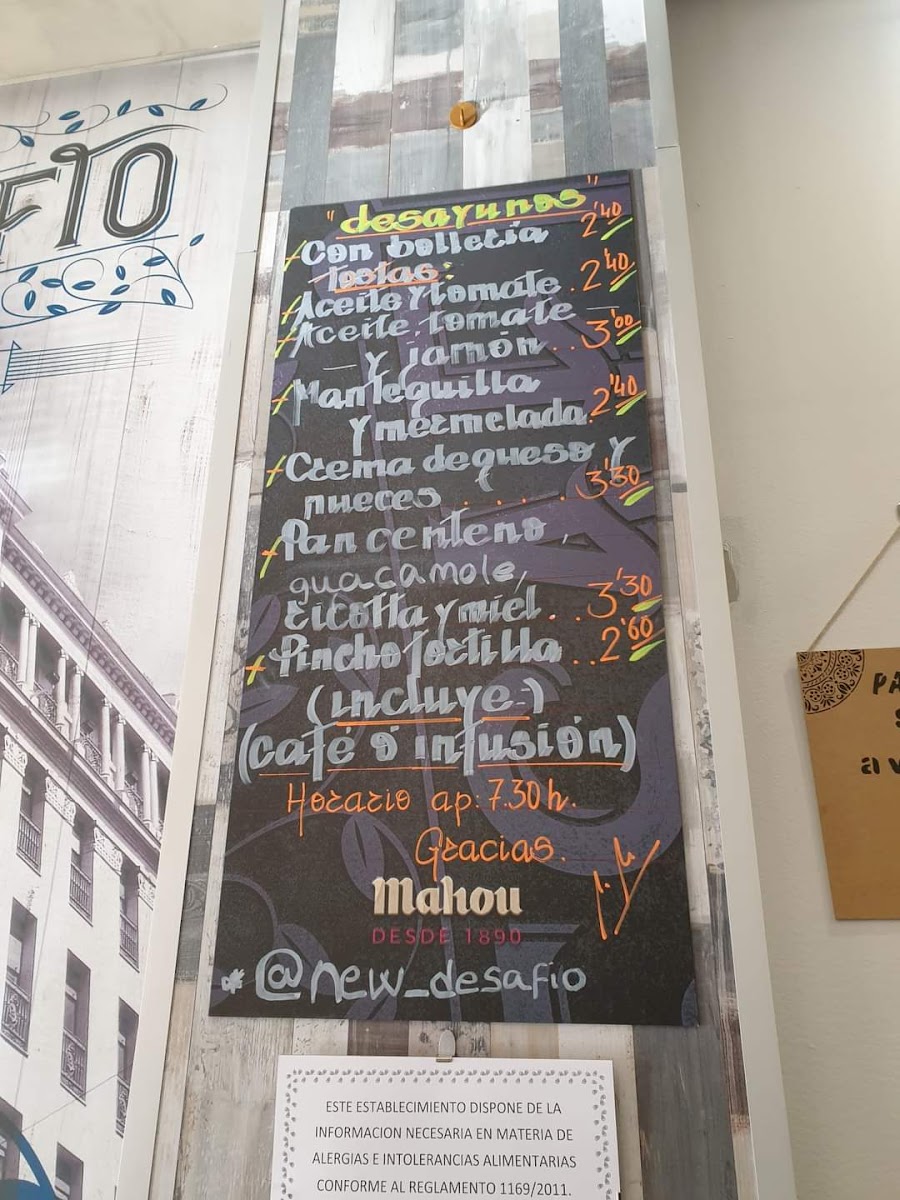 FIO
"desayunos"
Con bolleria 2'40
Tostas:
Aceite y tomate. 2'40
Aceite, tomate
y jamón... 3'00
Mantequilla
y mermelada. 2'40
Crema de queso y
nueces...... 3'30
Pan centeno,
guacamole,
ricotta y miel... 3'30
Pincho tortilla... 2'60
(incluye-)
(café ó infusión)
Horario ap: 7.30 h.
Gracias.
Mahou
DESDE 1890
* @new_desafio
ESTE ESTABLECIMIENTO DISPONE DE LA
INFORMACION NECESARIA EN MATERIA DE
ALERGIAS E INTOLERANCIAS ALIMENTARIAS
CONFORME AL REGLAMENTO 1169/2011.
PA
S
a v